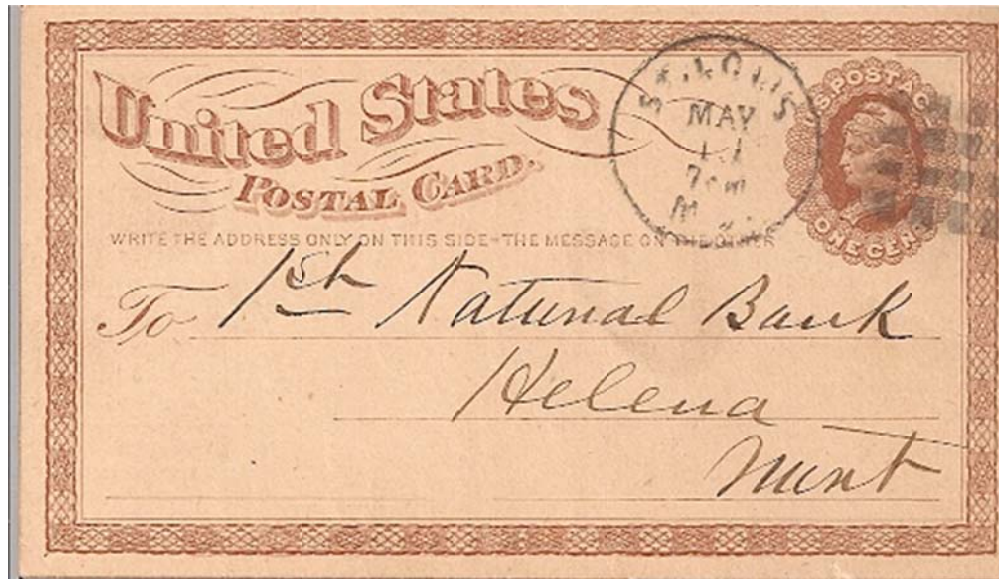 United States
POSTAL CARD.
WRITE THE ADDRESS ONLY ON THIS SIDE-THE MESSAGE ON THE OTHER
U.S. POSTAGE
ONE CENT
ST. LOUIS
MAY
7PM
To 1st National Bank
Helena
Mont